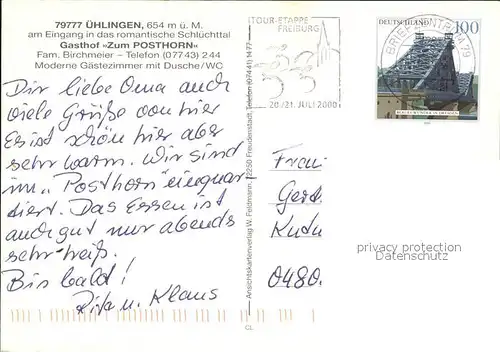 79777 ÜHLINGEN, 654 m ü. M.
am Eingang in das romantische Schlüchttal
Gasthof »Zum POSTHORN«
Fam. Birchmeier – Telefon (07743) 244
Moderne Gästezimmer mit Dusche/WC
Dir liebe Oma auch
viele Grüße von hier
Es ist schön hier aber
sehr warm. Wir sind
im „Posthorn" einquar
tiert. Das Essen ist
auch gut nur abends
sehr heiß.
Bis bald!
Rita u. Klaus
Ansichtskartenverlag W. Feldmann, 72250 Freudenstadt, Telefon (07441) 1477
TOUR-ETAPPE
FREIBURG
20./21. JULI 2000
DEUTSCHLAND 100
BRIEFZENTRUM 79
Frau
Gert.
0480.
privacy protection
Datenschutz
CL